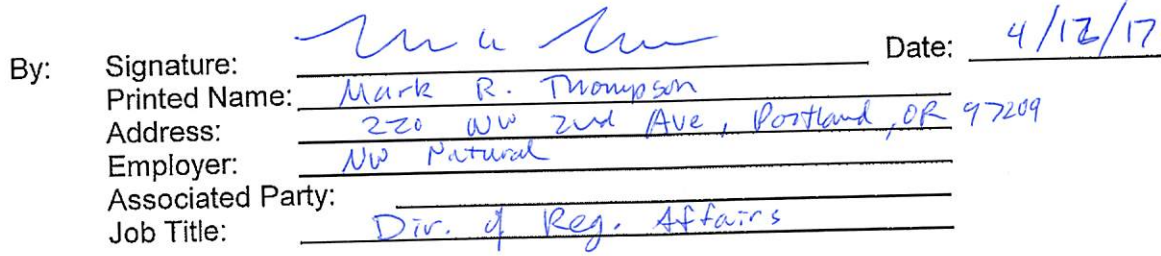 By: Signature: Date: 4/12/17
Printed Name: Mark R. Thompson
Address: 220 NW 2nd Ave, Portland, OR 97209
Employer: NW Natural
Associated Party:
Job Title: Dir. of Reg. Affairs